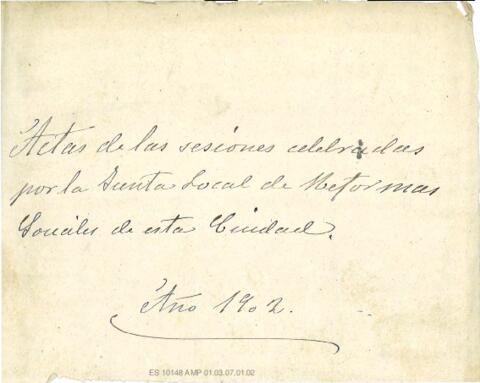 Actas de las sesiones celebradas
por la Junta Local de Reformas
Sociales de esta Ciudad.
Año 1902.
ES 10148 AMP 01.03.07.01.02